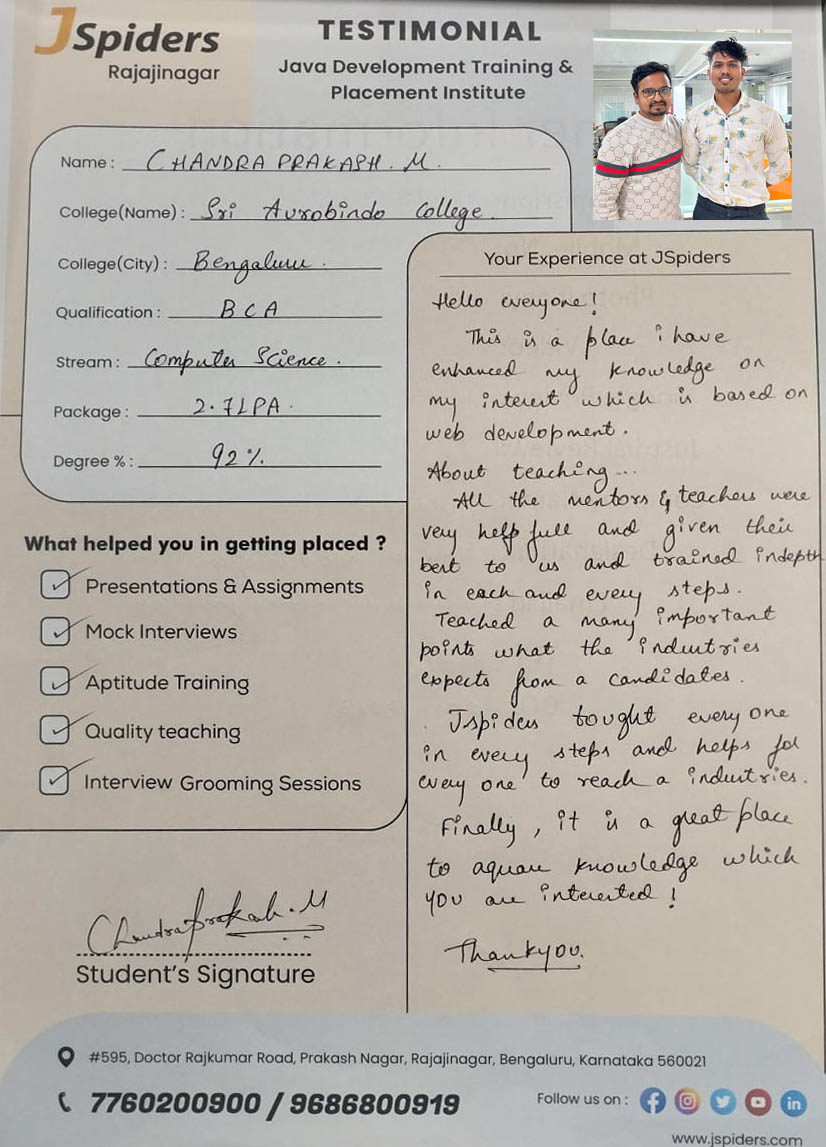 JSpiders
Rajajinagar
TESTIMONIAL
Java Development Training &
Placement Institute
Name : CHANDRA PRAKASH. M.
College(Name) : Sri Aurobindo College.
College(City) : Bengaluru.
Qualification : BCA
Stream : Computer Science.
Package : 2.7LPA.
Degree % : 92%
What helped you in getting placed ?
Presentations & Assignments
Mock Interviews
Aptitude Training
Quality teaching
Interview Grooming Sessions
Chandraprakash.M
Student's Signature
Your Experience at JSpiders
Hello everyone!
This is a place i have
enhanced my knowledge on
my interest which is based on
web development.
About teaching...
All the mentors & teachers were
very help full and given their
best to us and trained indepth
in each and every steps.
Teached a many important
points what the industries
expects from a candidates.
. Jspiders tought every one
in every steps and helps for
every one to reach a industries.
Finally, it is a great place
to aquare knowledge which
you are interested!
Thankyou.
#595, Doctor Rajkumar Road, Prakash Nagar, Rajajinagar, Bengaluru, Karnataka 560021
7760200900 / 9686800919
Follow us on :
www.jspiders.com